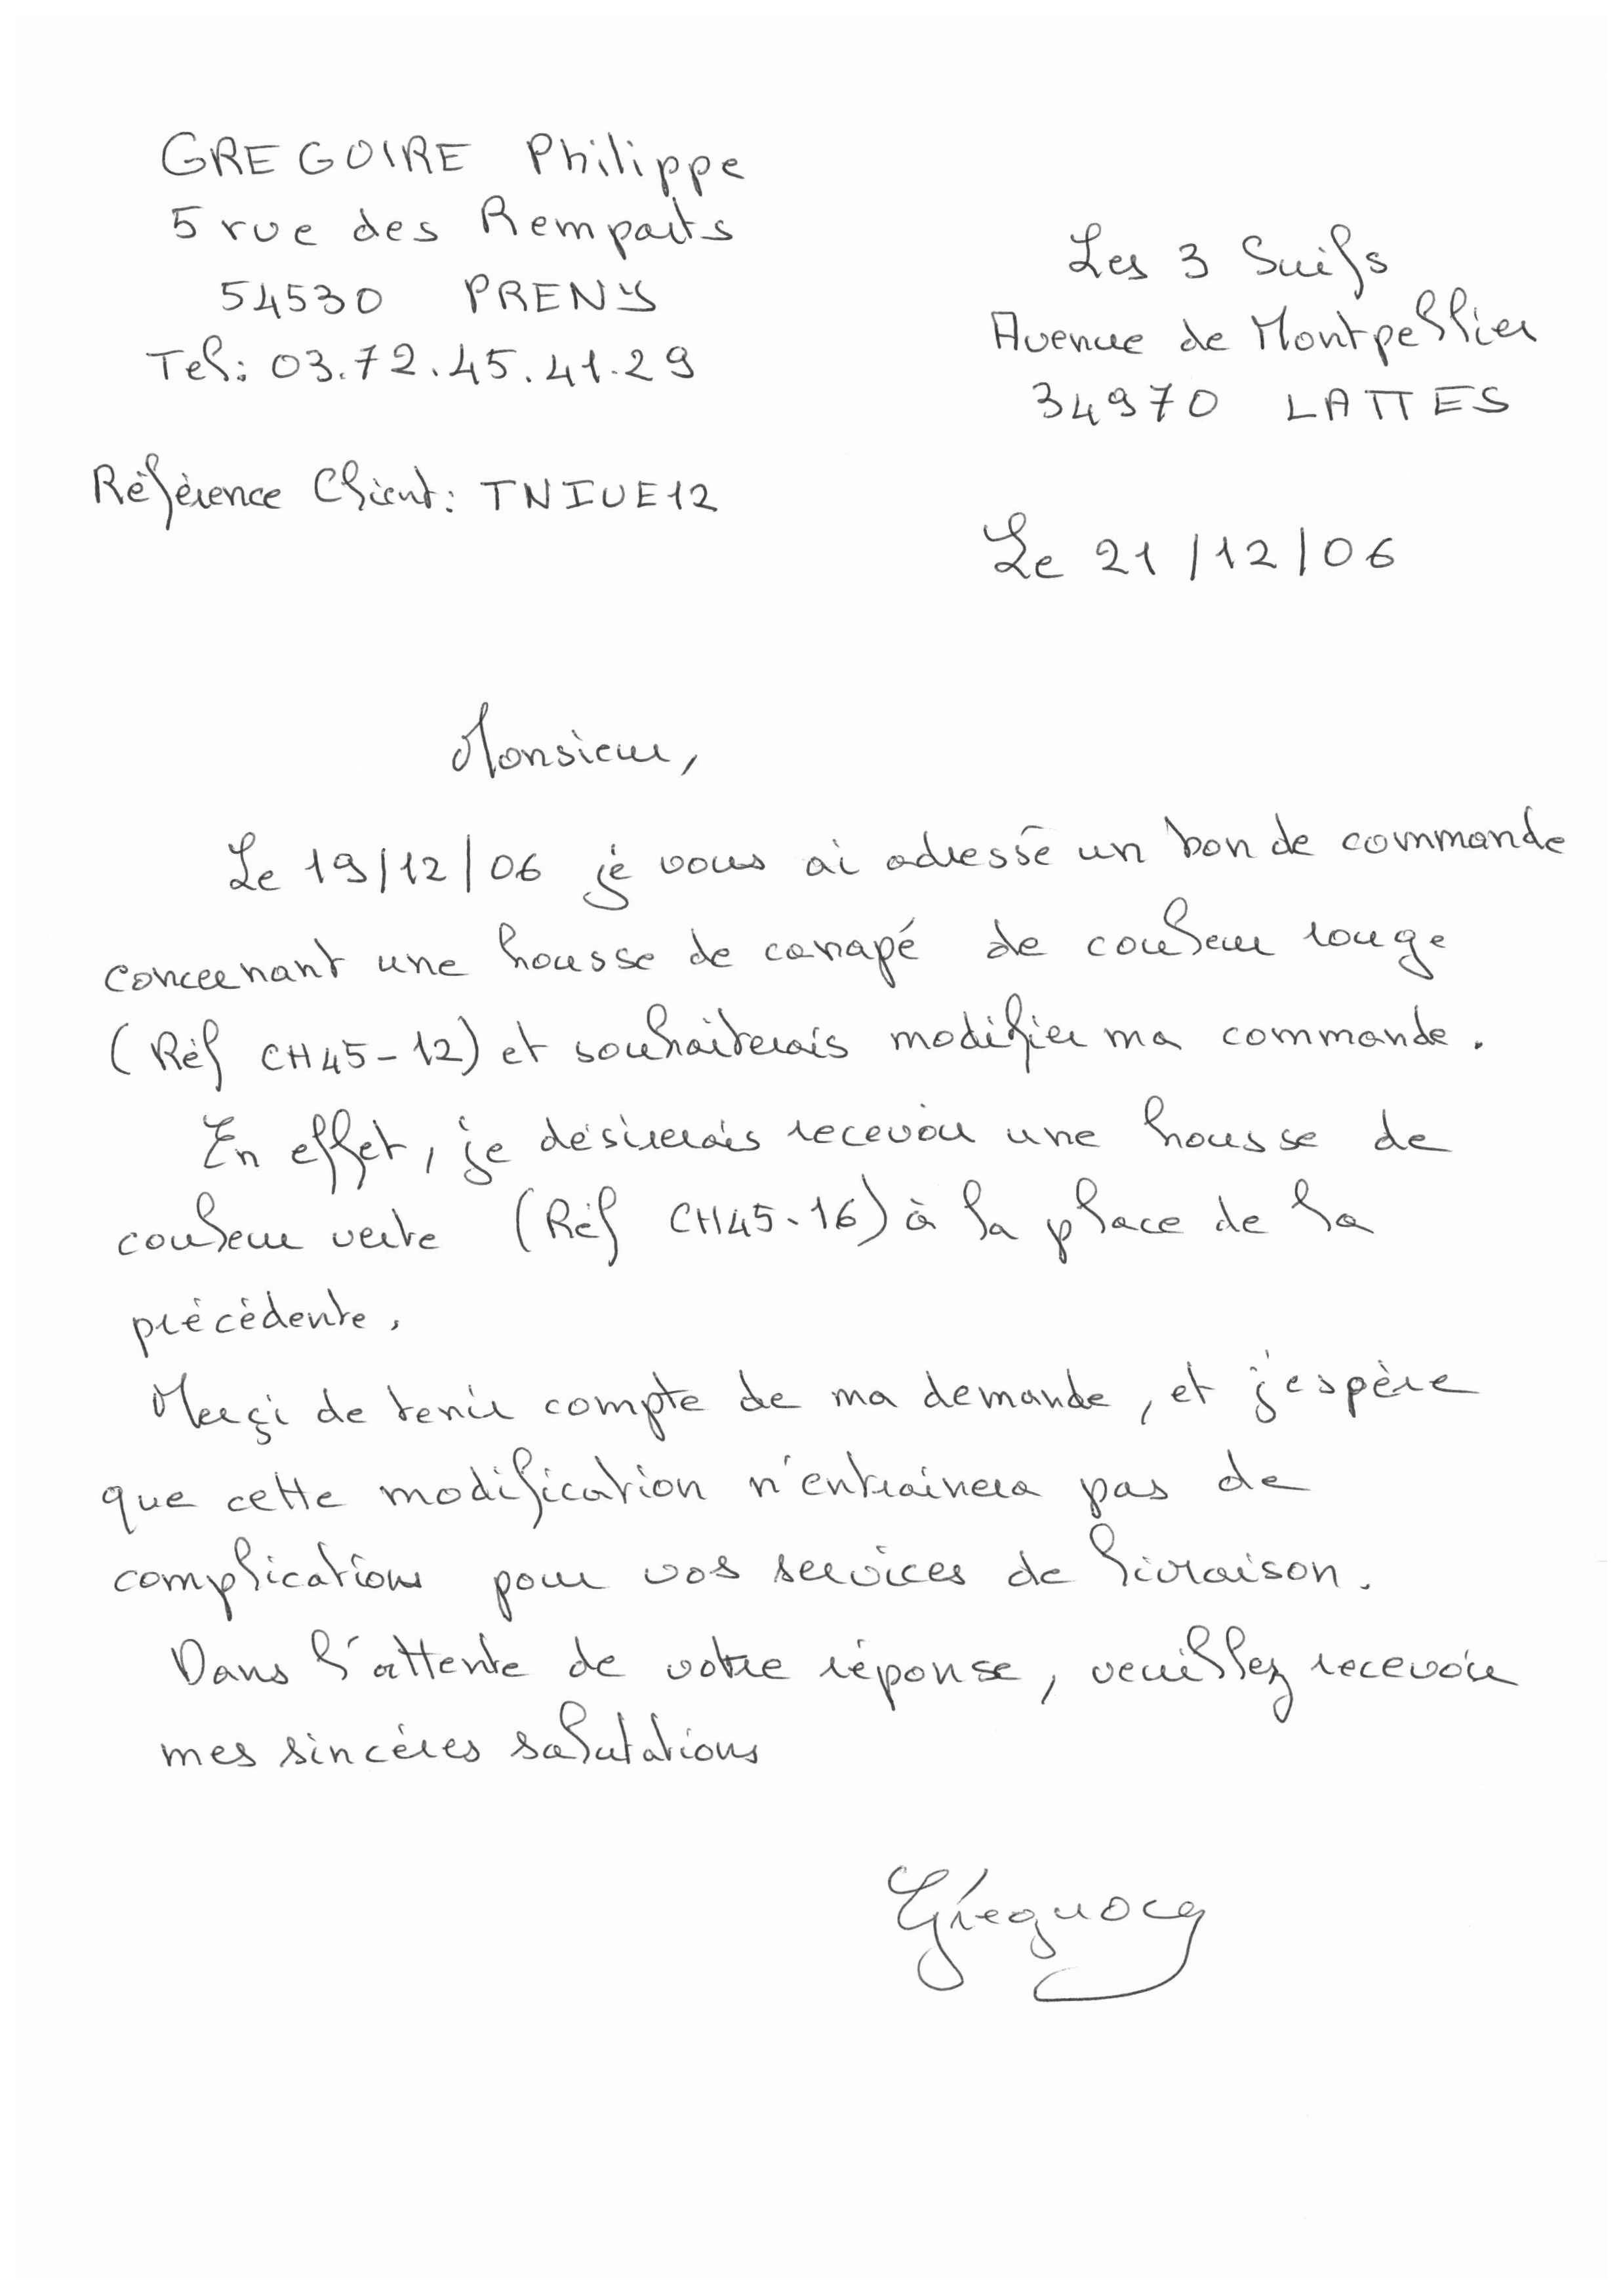 GREGOIRE Philippe
5 rue des Remparts
54530 PRENY
Tel: 03.72.45.41.29
Les 3 Suifs
Avenue de Montpellier
34970 LATTES
Référence Client: TNIUE12
Le 21/12/06
Monsieur,
Le 19/12/06 je vous ai adressé un bon de commande
concernant une housse de canapé de couleur rouge
(Réf CH45-12) et souhaiterais modifier ma commande.
En effet, je désirerais recevoir une housse de
couleur verte (Réf CH45-16) à la place de la
précédente.
Merçi de tenir compte de ma demande, et j'espère
que cette modification n'entrainera pas de
complications pour vos services de livraison.
Dans l'attente de votre réponse, veuillez recevoir
mes sincères salutations